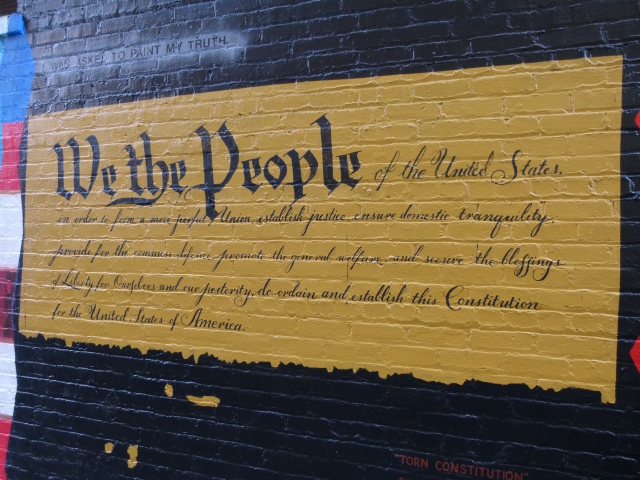 I WAS ASKED TO PAINT MY TRUTH.
We the People of the United States,
in order to form a more perfect Union, establish justice, ensure domestic tranquility,
provide for the common defence, promote the general welfare, and secure the blessings
of Liberty for Ourselves and our posterity, do ordain and establish this Constitution
for the United States of America.
"TORN CONSTITUTION"